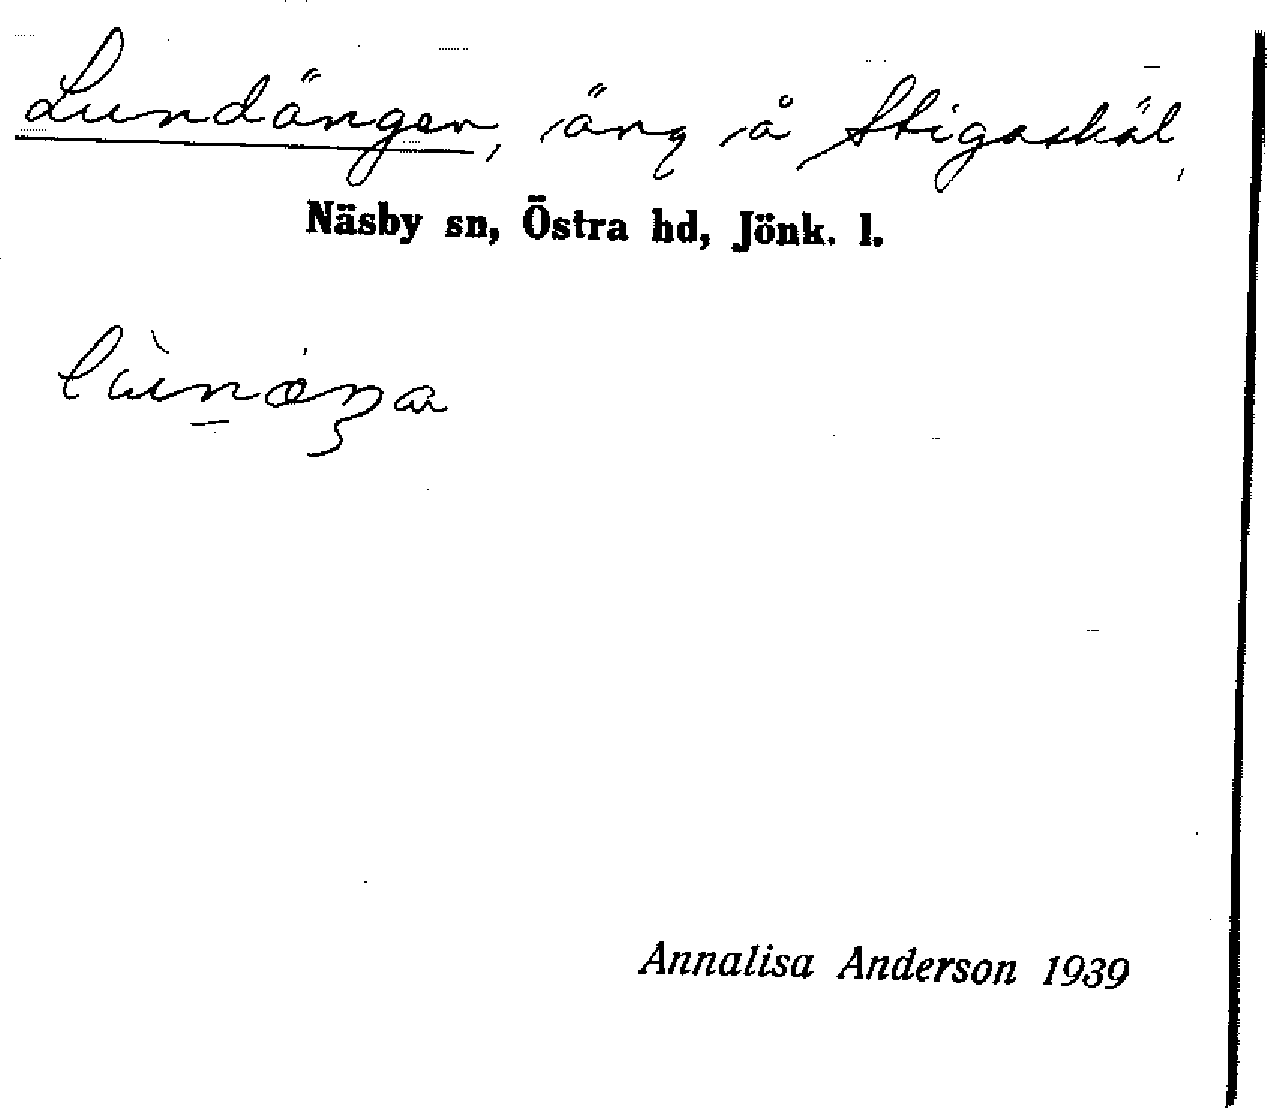 Lundängen, äng å Stigaskäl,
Näsby sn, Östra hd, Jönk. l.
Annalisa Anderson 1939